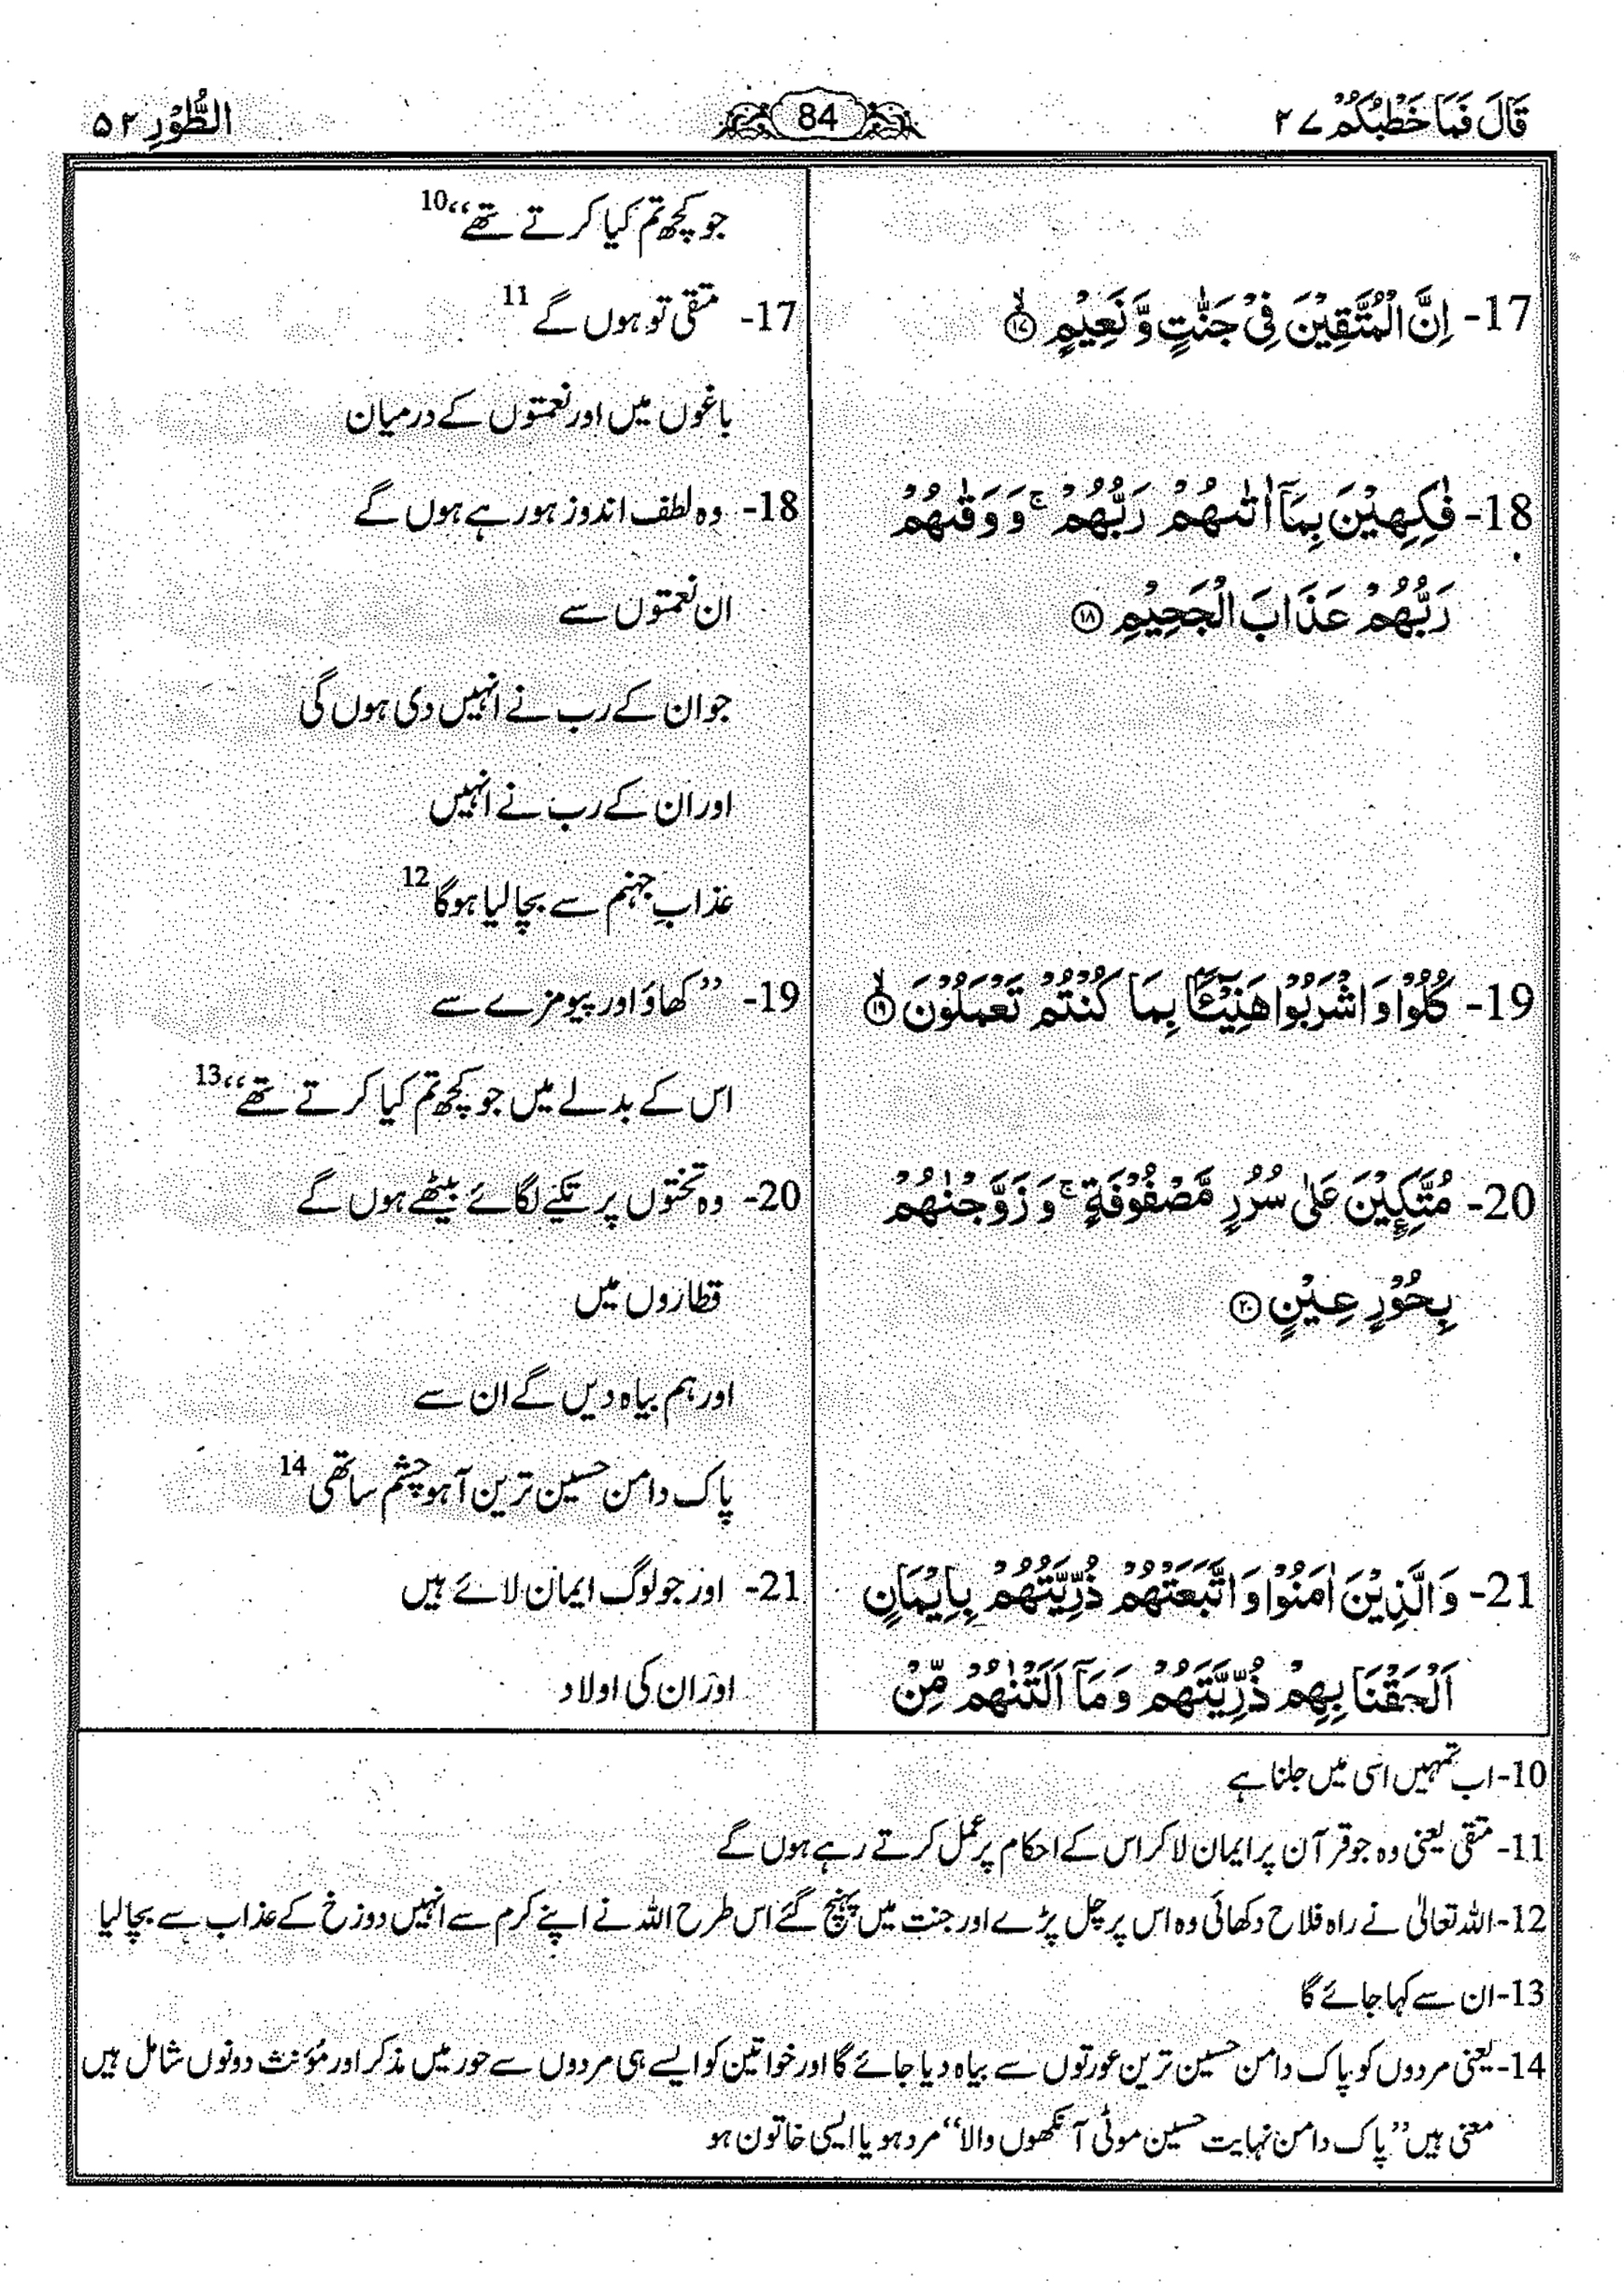 قَالَ فَمَا خَطْبُكُمْ ۲۷
84
الطُّوْرِ ۵۲
جو کچھ تم کیا کرتے تھے“10
17- اِنَّ الْمُتَّقِيْنَ فِيْ جَنّٰتٍ وَّ نَعِيْمٍ ۙ﴿۱۷﴾
17- متقی تو ہوں گے 11
باغوں میں اور نعمتوں کے درمیان
18- فٰكِهِيْنَ بِمَاۤ اٰتٰىهُمْ رَبُّهُمْ ۚ وَ وَقٰىهُمْ
رَبُّهُمْ عَذَابَ الْجَحِيْمِ ﴿۱۸﴾
18- وہ لطف اندوز ہو رہے ہوں گے
ان نعمتوں سے
جو ان کے رب نے انہیں دی ہوں گی
اور ان کے رب نے انہیں
عذابِ جہنم سے بچا لیا ہوگا 12
19- كُلُوْا وَ اشْرَبُوْا هَنِيْٓـًٔۢا بِمَا كُنْتُمْ تَعْمَلُوْنَ ۙ﴿۱۹﴾
19- ”کھاؤ اور پیو مزے سے
اس کے بدلے میں جو کچھ تم کیا کرتے تھے“13
20- مُتَّكِـِٕيْنَ عَلٰى سُرُرٍ مَّصْفُوْفَةٍ ۚ وَ زَوَّجْنٰهُمْ
بِحُوْرٍ عِيْنٍ ﴿۲۰﴾
20- وہ تختوں پر تکیے لگائے بیٹھے ہوں گے
قطاروں میں
اور ہم بیاہ دیں گے ان سے
پاک دامن حسین ترین آہو چشم ساتھی 14
21- وَ الَّذِيْنَ اٰمَنُوْا وَ اتَّبَعَتْهُمْ ذُرِّيَّتُهُمْ بِاِيْمَانٍ
اَلْحَقْنَا بِهِمْ ذُرِّيَّتَهُمْ وَ مَاۤ اَلَتْنٰهُمْ مِّنْ
21- اور جو لوگ ایمان لائے ہیں
اور ان کی اولاد
10- اب تمہیں اسی میں جلنا ہے
11- متقی یعنی وہ جو قرآن پر ایمان لا کر اس کے احکام پر عمل کرتے رہے ہوں گے
12- اللہ تعالیٰ نے راہ فلاح دکھائی وہ اس پر چل پڑے اور جنت میں پہنچ گئے اس طرح اللہ نے اپنے کرم سے انہیں دوزخ کے عذاب سے بچا لیا
13- ان سے کہا جائے گا
14- یعنی مردوں کو پاک دامن حسین ترین عورتوں سے بیاہ دیا جائے گا اور خواتین کو ایسے ہی مردوں سے حور میں مذکر اور مؤنث دونوں شامل ہیں
معنی ہیں ”پاک دامن نہایت حسین موٹی آنکھوں والا“ مرد ہو یا ایسی خاتون ہو